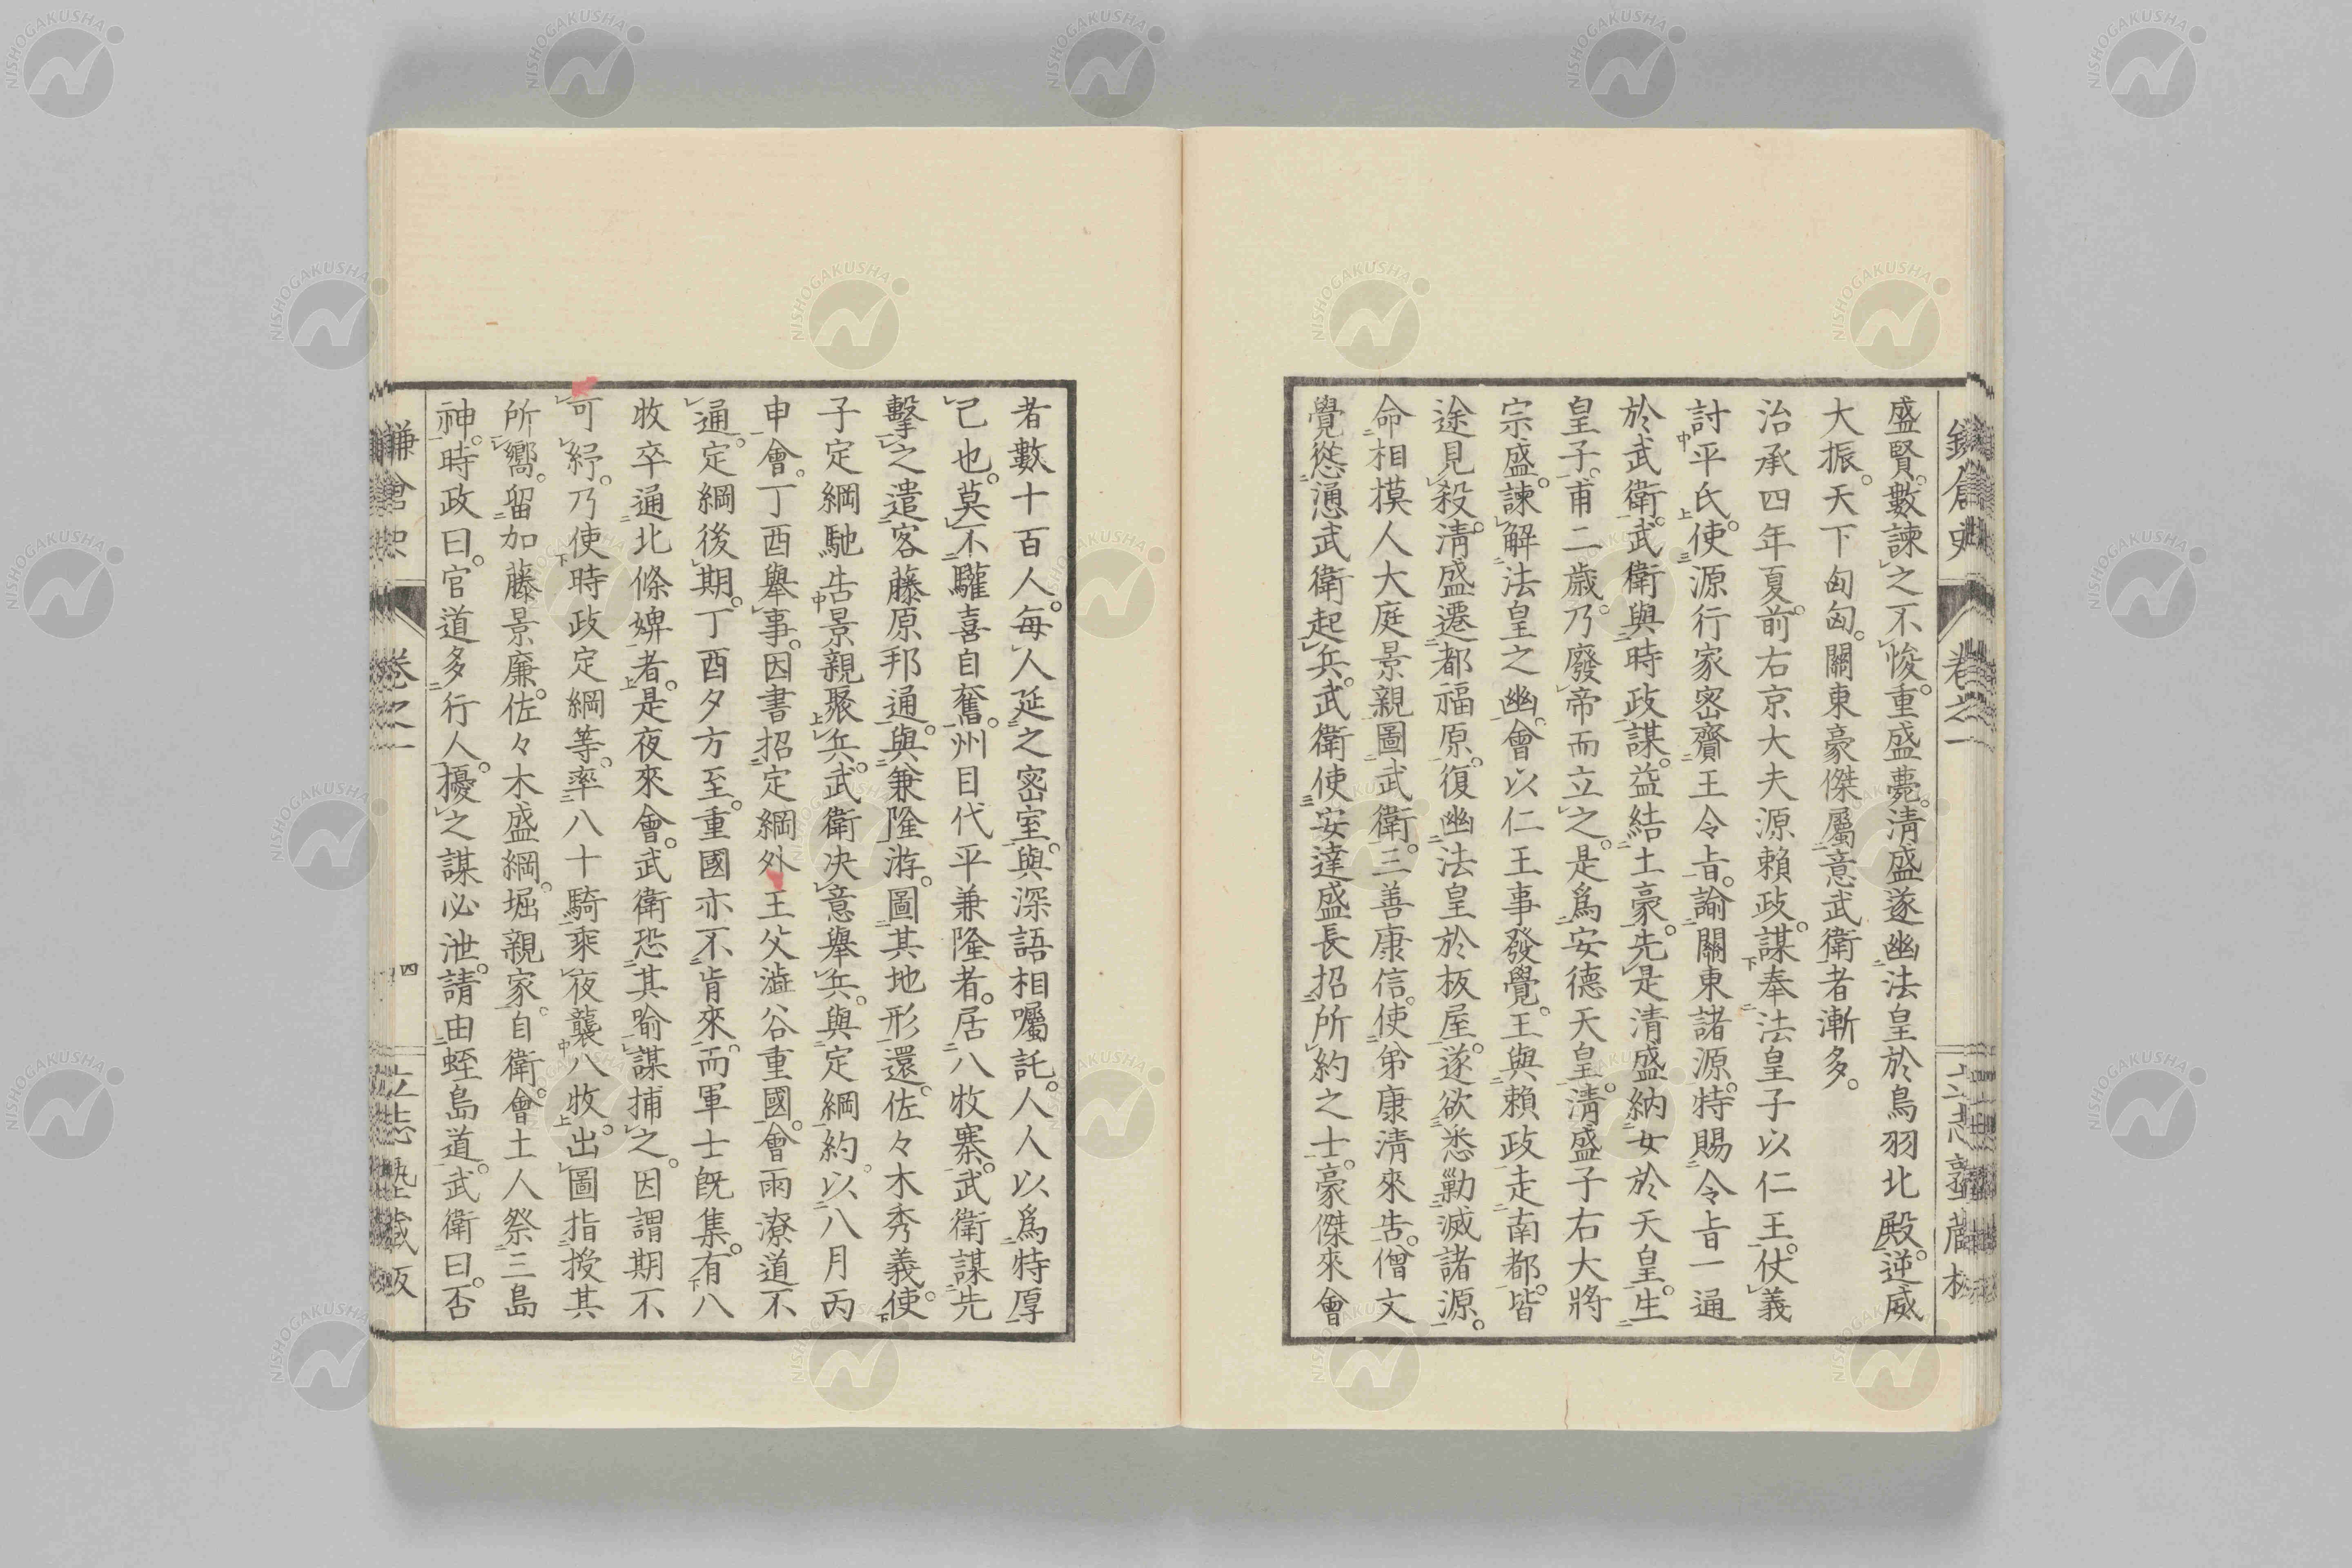 盛賢。數諫之不悛。重盛薨。淸盛遂幽法皇於鳥羽北殿。逆威
大振。天下匈匈。關東豪傑屬意武衛者漸多。
治承四年夏。前右京大夫源賴政。謀奉法皇子以仁王。仗義
討平氏。使源行家密齎王令旨。諭關東諸源。特賜令旨一通
於武衛。武衛與時政謀。益結土豪。先是清盛納女於天皇。生
皇子。甫二歲。乃廢帝而立之。是爲安德天皇。淸盛子右大將
宗盛。諫解法皇之幽。會以仁王事發覺。王與賴政走南都。皆
途見殺。淸盛遷都福原。復幽法皇於板屋。遂欲悉勦滅諸源。
命相摸人大庭景親圖武衛。三善康信。使弟康淸來告。僧文
覺慫慂武衛起兵。武衛使安達盛長招所約之士。豪傑來會
者數十百人。每人延之密室。與深語相囑託。人人以爲特厚
己也。莫不驩喜自奮。州目代平兼隆者。居八牧寨。武衛謀先
擊之遣客藤原邦通。與兼隆游。圖其地形還。佐々木秀義。使
子定綱馳告景親聚兵。武衛决意舉兵。與定綱約。以八月丙
申會。丁酉舉事。因書招定綱外王父澁谷重國。會雨潦道不
通。定綱後期。丁酉夕方至。重國亦不肯來。而軍士旣集。有八
牧卒通北條婢者。是夜來會。武衛恐其喻謀捕之。因謂期不
可紓。乃使時政定綱等。率八十騎乘夜襲八牧。出圖指授其
所嚮。留加藤景廉。佐々木盛綱。堀親家。自衛。會土人祭三島
神。時政曰。官道多行人。擾之謀必泄。請由蛭島道。武衛曰。否
卷之一
四